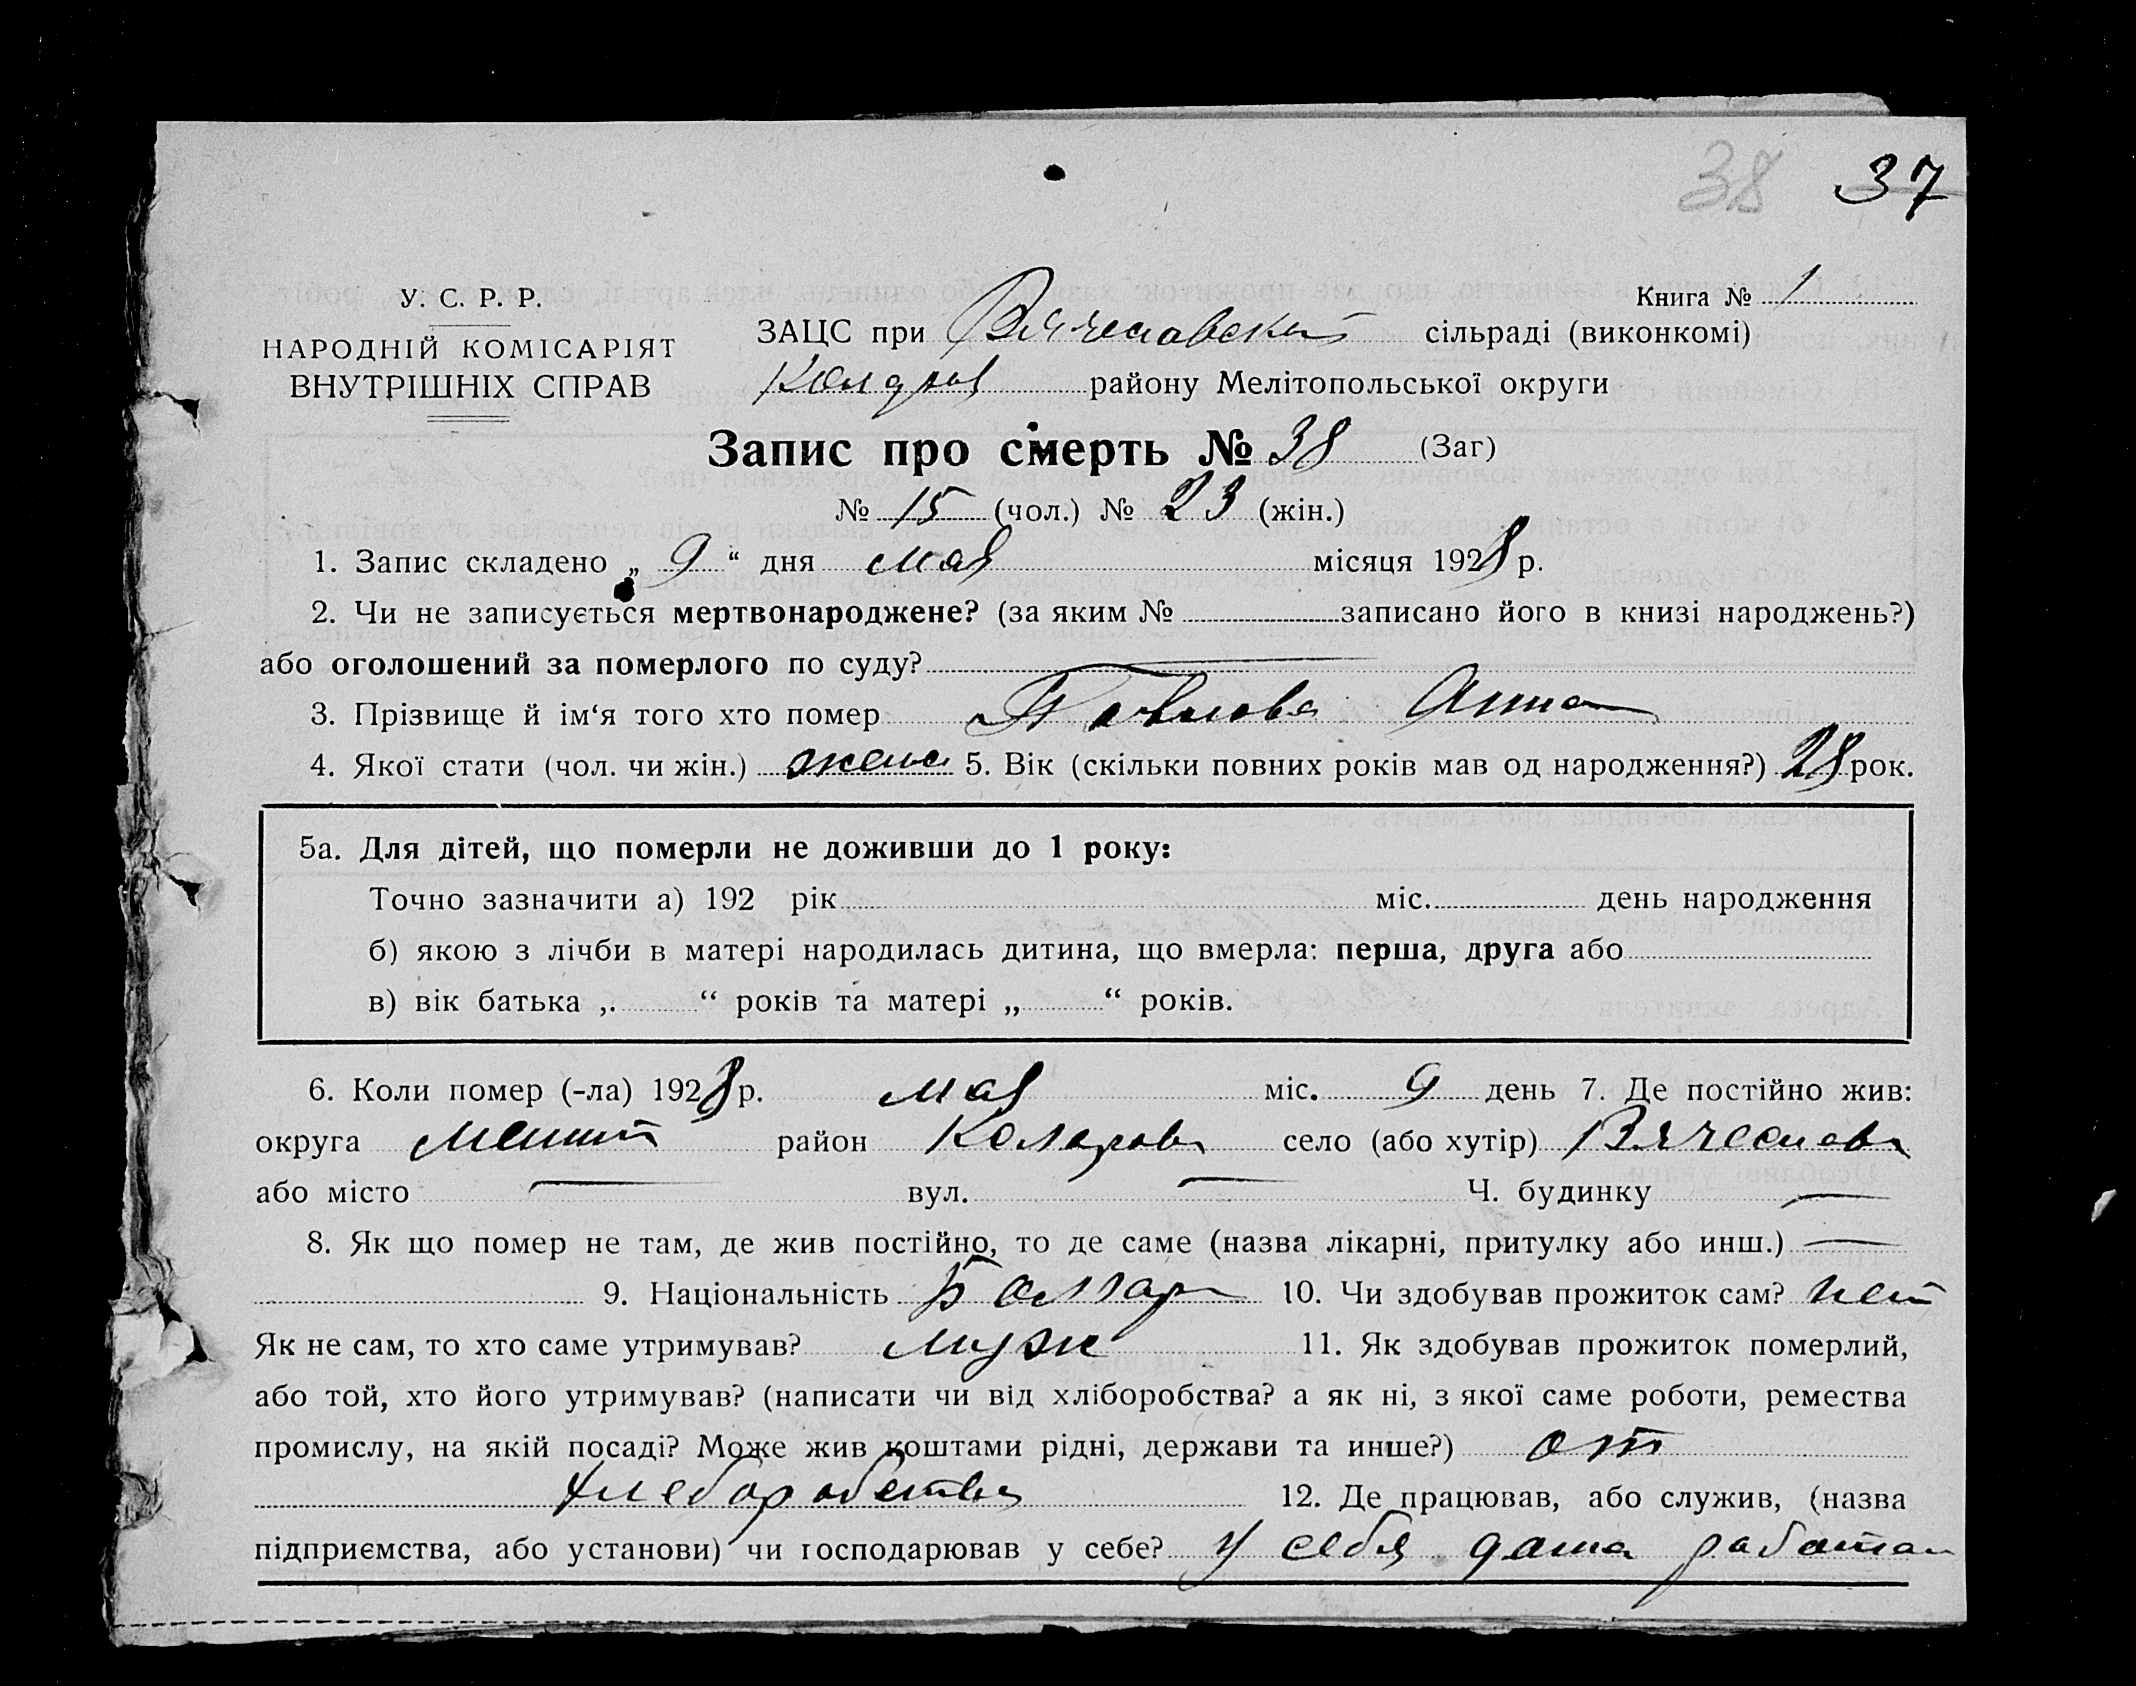 38 37
У. С. Р. Р.
Книга № 1
НАРОДНІЙ КОМІСАРІЯТ
ВНУТРІШНІХ СПРАВ
ЗАЦС при Вячеславский сільраді (виконкомі)
району Мелітопольської округи
Запис про смерть № 38 (Заг)
№ 15 (чол.) № 23 (жін.)
1. Запис складено „ 9 “ дня мая місяця 1928 р.
2. Чи не записується мертвонароджене? (за яким № записано його в книзі народжень?)
або оголошений за померлого по суду? —
3. Прізвище й ім‘я того хто помер Павлова Анна
4. Якої стати (чол. чи жін.) жена 5. Вік (скільки повних років мав од народження?) 28 рок.
5а. Для дітей, що померли не доживши до 1 року:
Точно зазначити а) 192 рік міс. день народження
б) якою з лічби в матері народилась дитина, що вмерла: перша, друга або
в) вік батька ,. “ років та матері „ “ років.
6. Коли помер (-ла) 1928 р. мая міс. 9 день 7. Де постійно жив:
округа район Коларов село (або хутір) Вячеслав
або місто — вул. — Ч. будинку —
8. Як що помер не там, де жив постійно, то де саме (назва лікарні, притулку або инш.) —
9. Національність Болгар 10. Чи здобував прожиток сам? нет
Як не сам, то хто саме утримував? муж 11. Як здобував прожиток померлий,
або той, хто його утримував? (написати чи від хліборобства? а як ні, з якої саме роботи, ремества
промислу, на якій посаді? Може жив коштами рідні, держави та инше?) от
хлеборобства 12. Де працював, або служив, (назва
підприємства, або установи) чи господарював у себе? У себя дома работал